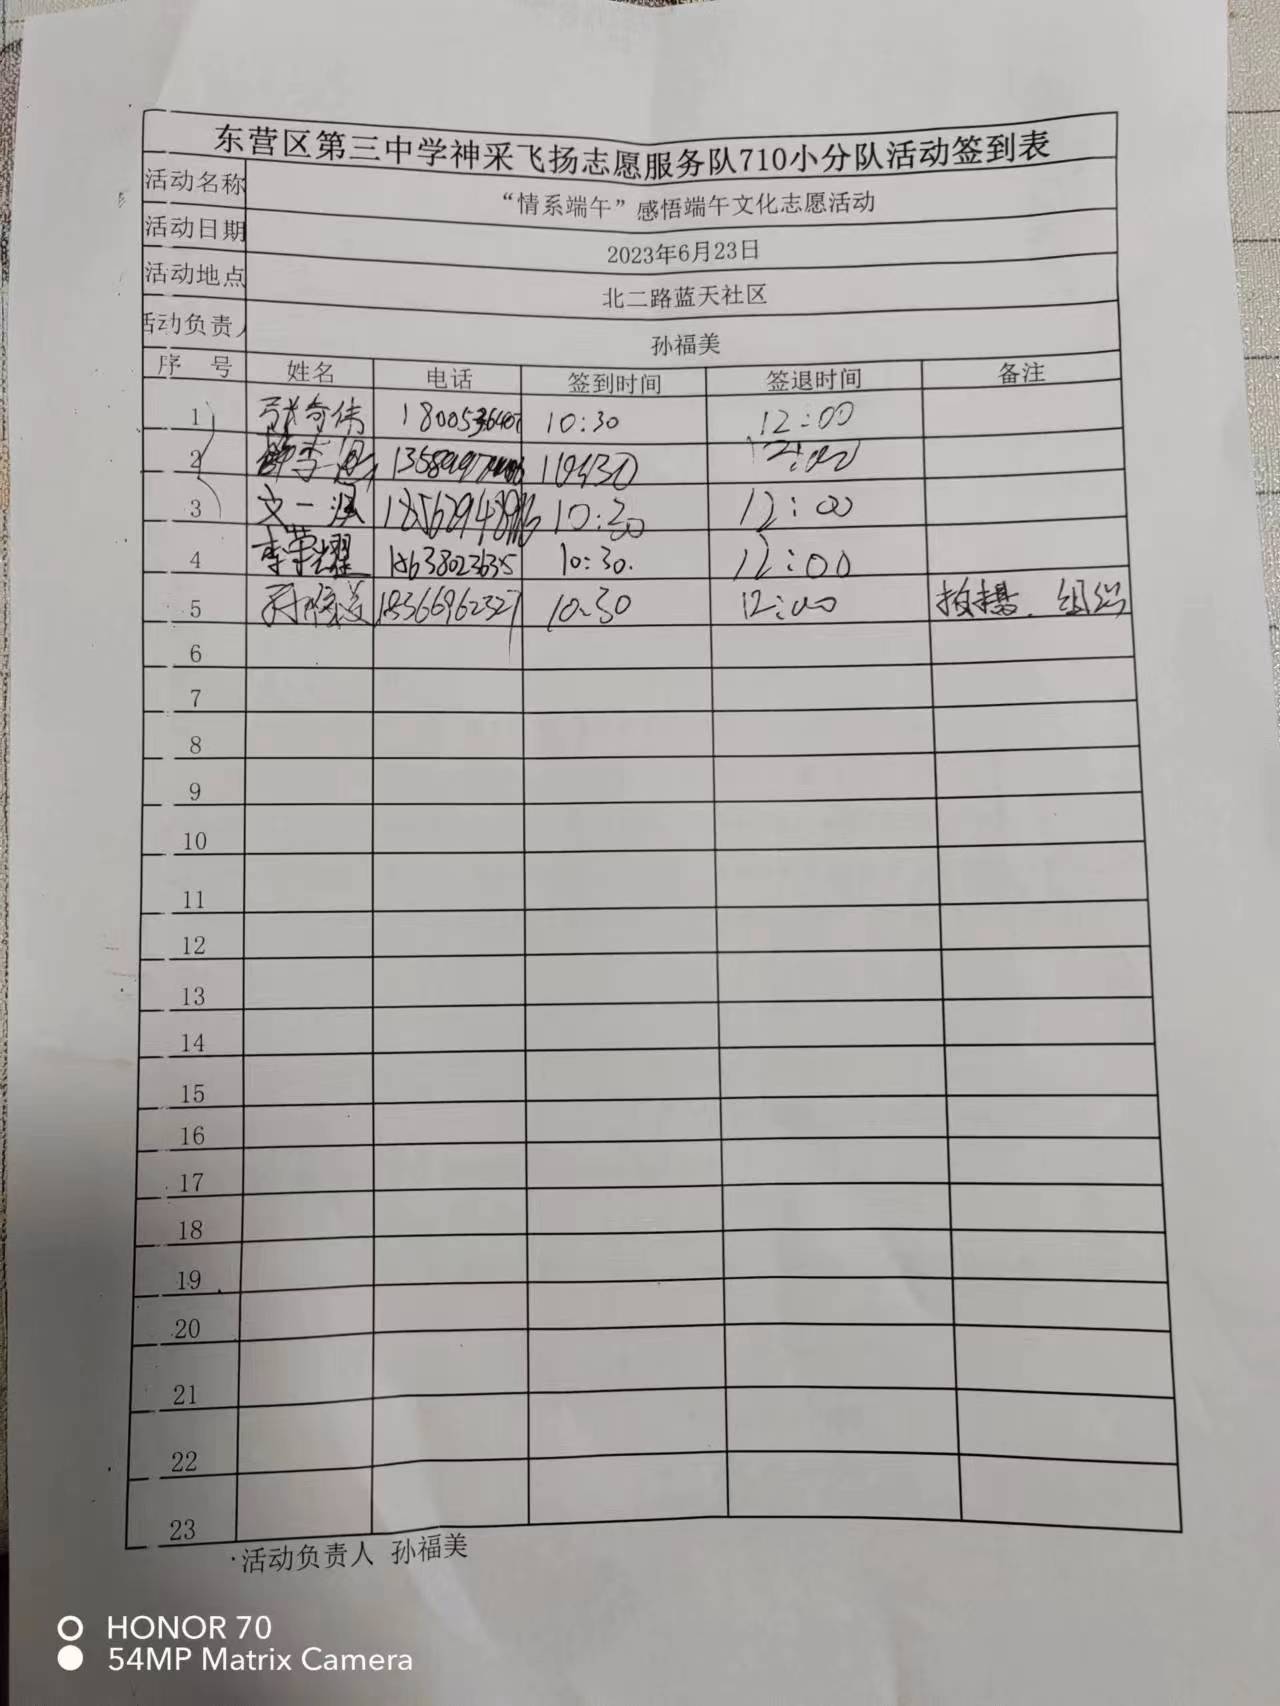 东营区第三中学神采飞扬志愿服务队710小分队活动签到表
活动名称 “情系端午”感悟端午文化志愿活动
活动日期 2023年6月23日
活动地点 北二路蓝天社区
活动负责人 孙福美
序 号 姓名 电话 签到时间 签退时间 备注
1 张奇伟 10:30 12:00
2 12:00
3 文一 10:30 12:00
4 李荣耀 18638023635 10:30. 12:00
5 孙福美 18366962327 10:30 12:00 组织
6
7
8
9
10
11
12
13
14
15
16
17
18
19
20
21
22
23
活动负责人 孙福美
HONOR 70
54MP Matrix Camera